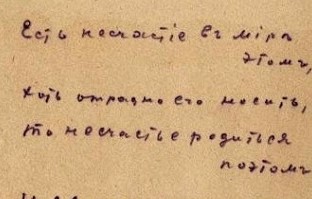 Есть несчастіе въ мірѣ
этомъ,
хоть отрадно его носить,
то несчастье родиться
поэтомъ